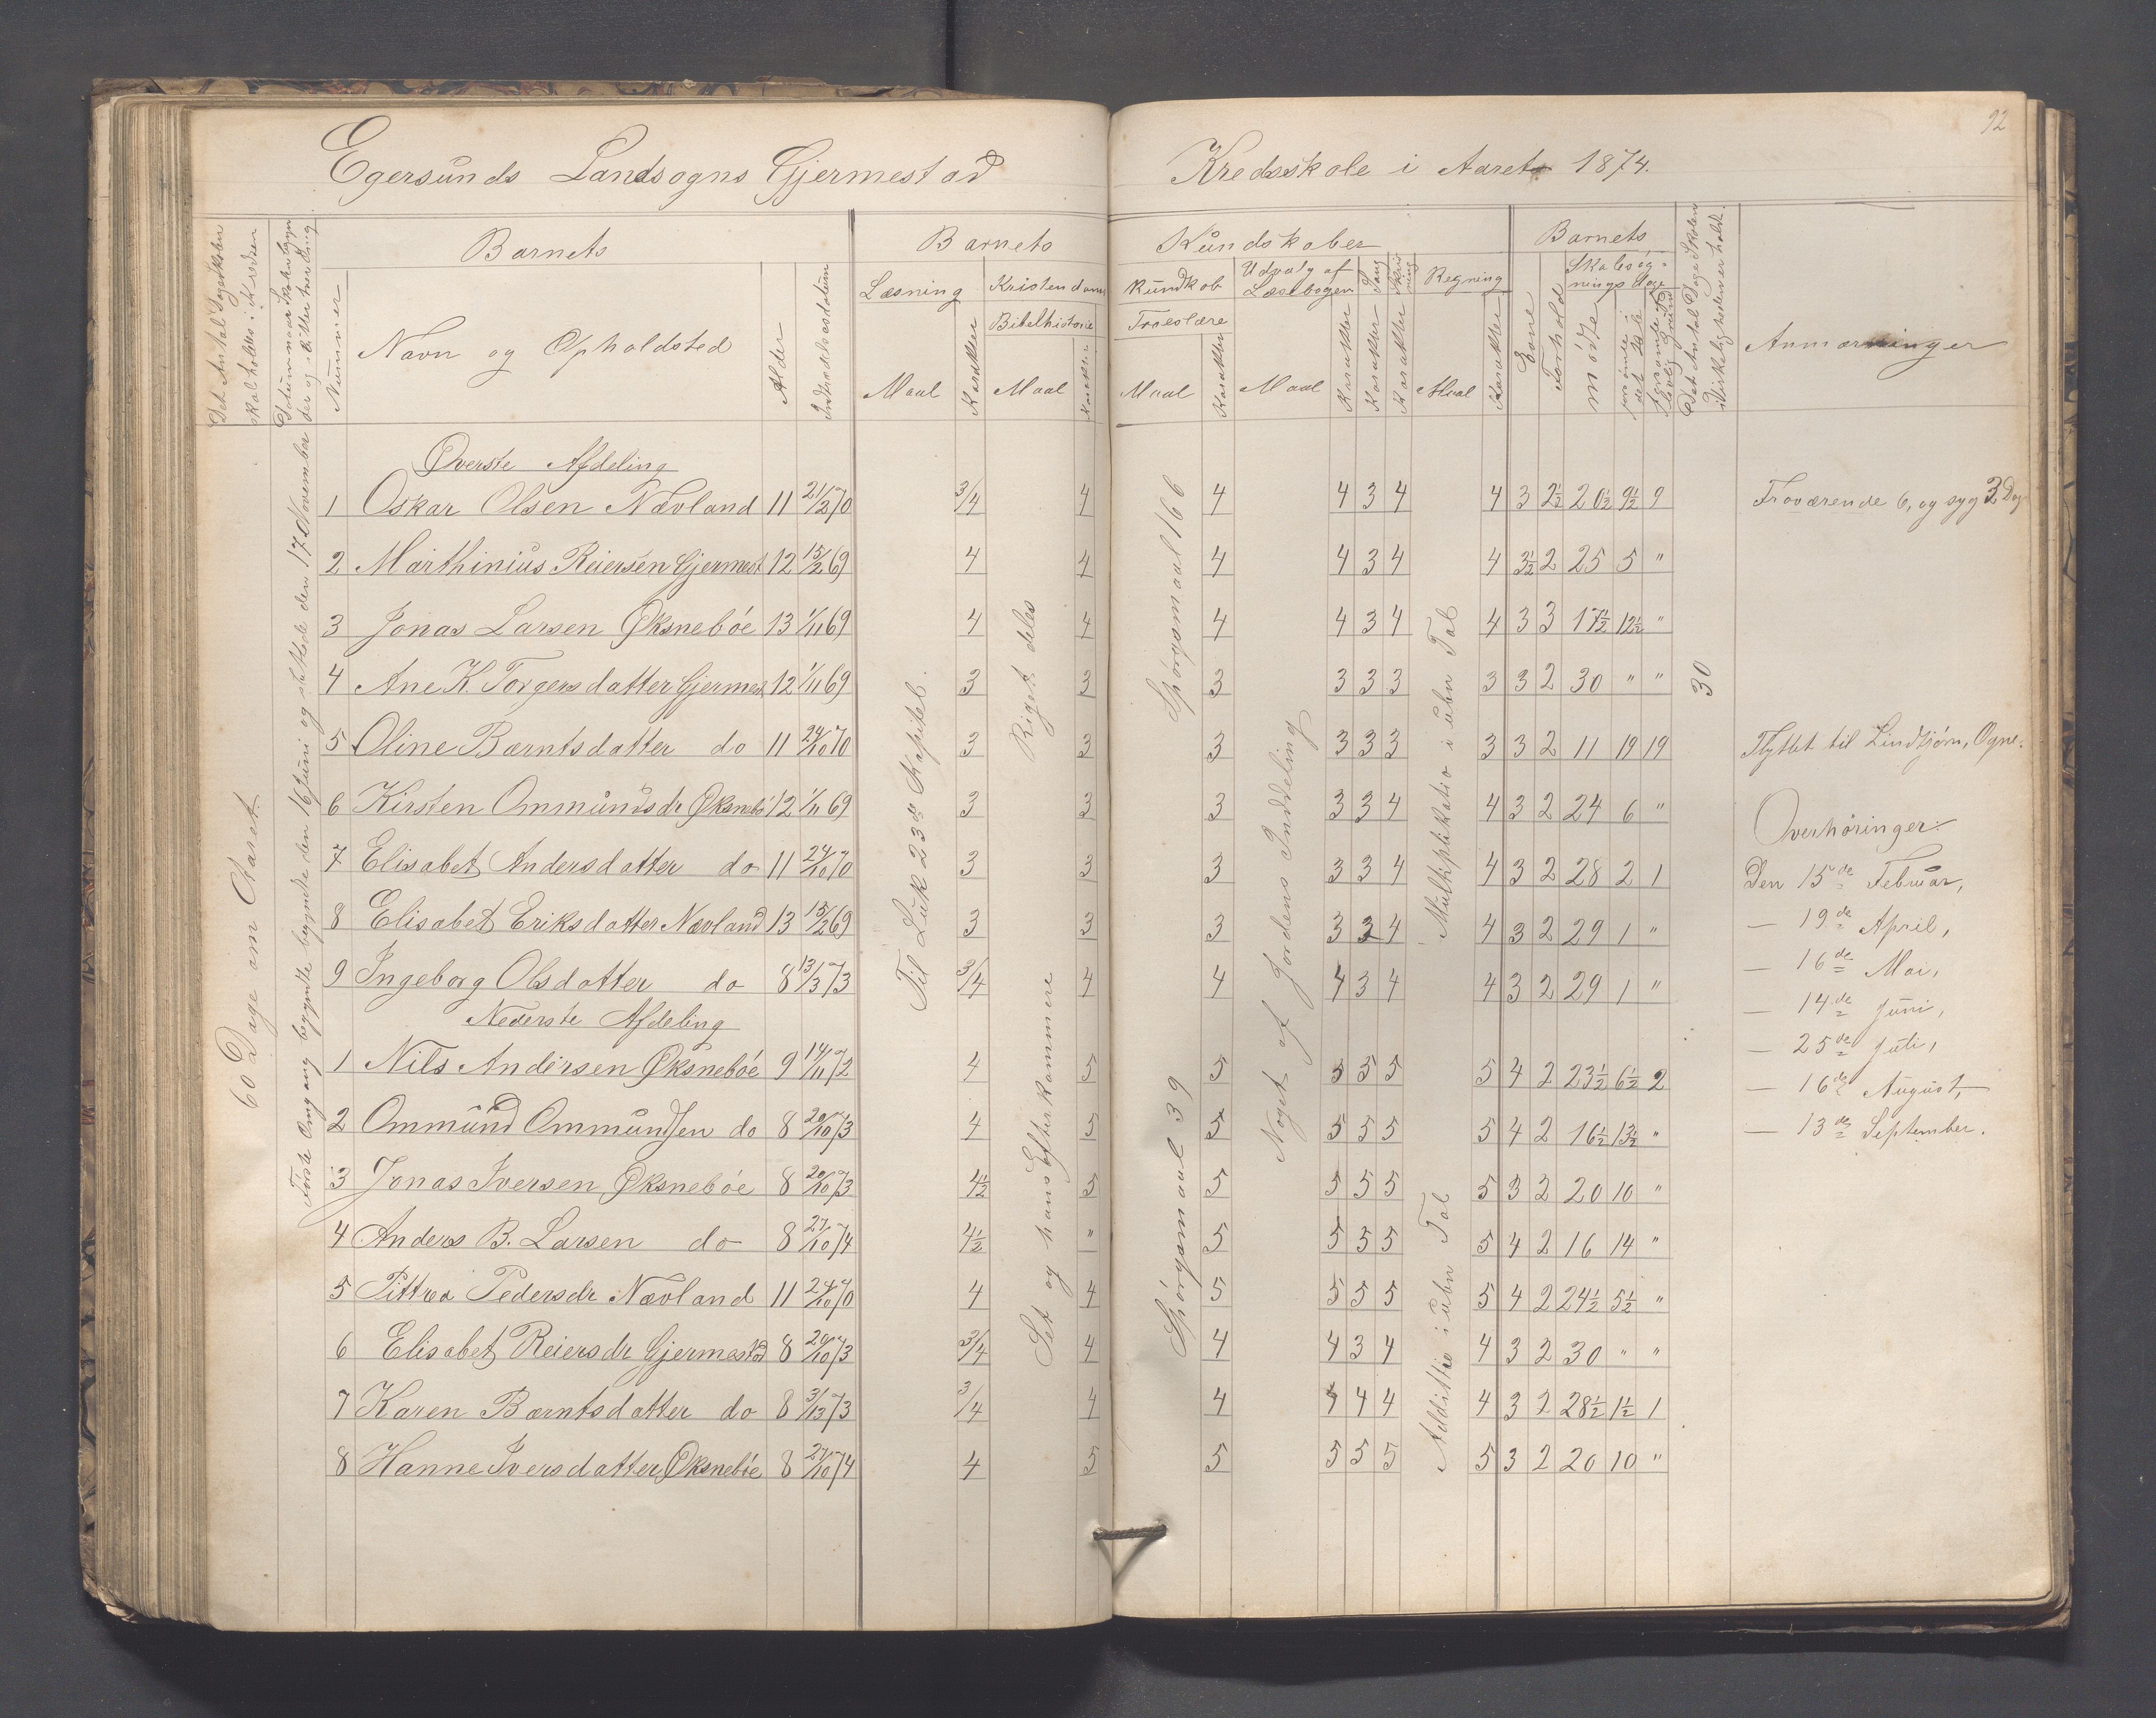 92
Egersunds Landsogns Gjermestad Kredsskole i Aaret 1874.
Barnets Barnets Kundskaber Barnets
Det Antal Dage Skolen skal holdes i Kredsen
Nummer Navn og Opholdsted Alder Indtrædelsesdatum
Læsning Kristendoms kundskab Udvalg af Læsebogen Sang Skrivning Regning
Bibelhistorie Troeslære
Maal Karakter Maal Karakter Maal Karakter Maal Karakter Karakter Karakter Maal Karakter
Evne Forhold Skolesøgningsdage mødte
Det Antal Dage Skolen i Virkeligheden er holdt.
Anmærkninger
60 Dage om Aaret.
Første Omgang begyndte den 16 Juni og sluttede den 17de November
Til Luk. 23de Kapitel.
Riget deles
Set og hans Efterkommere
Spørgsmaal 166
Spørgsmaal 39
Noget af Jordens Inddeling
Multiplikatio i ubn Tal
Additio i ubn Tal
30
Øverste Afdeling
1 Oskar Olsen Nævland 11 21/2 70 3/4 4 4 4 3 4 4 3 2½ 20½ 9½ 9 Fraværende 6, og syg 3 Dag
2 Marthinius Reiersen Gjermest 12 15/2 69 4 4 4 4 3 4 4 3½ 2 25 5 "
3 Jonas Larsen Øksnebøe 13 1/11 69 4 4 4 4 3 4 4 3 3 17½ 12½ "
4 Ane K. Torgersdatter Gjermest 12 1/11 69 3 3 3 3 3 3 3 3 2 30 " "
5 Oline Berntsdatter do 11 24/10 70 3 3 3 3 3 3 3 3 2 11 19 19 Flyttet til Lindtjørn, Ogne.
6 Kirsten Ommundsdr Øksnebø 12 1/11 69 3 3 3 3 3 4 4 3 2 24 6 "
7 Elisabet Andersdatter do 11 24/10 70 3 3 3 3 3 4 4 3 2 28 2 1
8 Elisabet Eriksdatter Nævland 13 15/2 69 3 3 3 3 3 4 4 3 2 29 1 "
9 Ingeborg Olsdatter do 8 13/3 73 3/4 4 4 4 3 4 4 3 2 29 1 "
Nederste Afdeling
1 Nils Andersen Øksnebøe 9 14/11 72 4 5 5 5 5 5 5 4 2 23½ 6½ 2
2 Ommund Ommundsen do 8 20/10 73 4 5 5 5 5 5 5 4 2 16½ 13½ "
3 Jonas Iversen Øksnebøe 8 20/10 73 4½ 5 5 5 5 5 5 3 2 20 10 "
4 Anders B. Larsen do 8 27/10 74 4½ " 5 5 5 5 5 4 2 16 14 "
5 Pedersdr Nævland 11 24/10 70 4 4 5 5 5 5 5 4 2 24½ 5½ "
6 Elisabet Reiersdr Gjermestad 8 20/10 73 3/4 4 4 4 3 4 4 3 2 30 " "
7 Karen Berntsdatter do 8 3/13 73 3/4 4 4 4 4 4 4 3 2 28½ 1½ 1
8 Hanne Iversdatter Øksnebøe 8 27/10 74 4 5 5 5 5 5 5 3 2 20 10 "
Overhøringer:
Den 15de Februar,
— 19de April,
— 16de Mai,
— 14de Juni,
— 25de Juli,
— 16de August,
— 13de September.